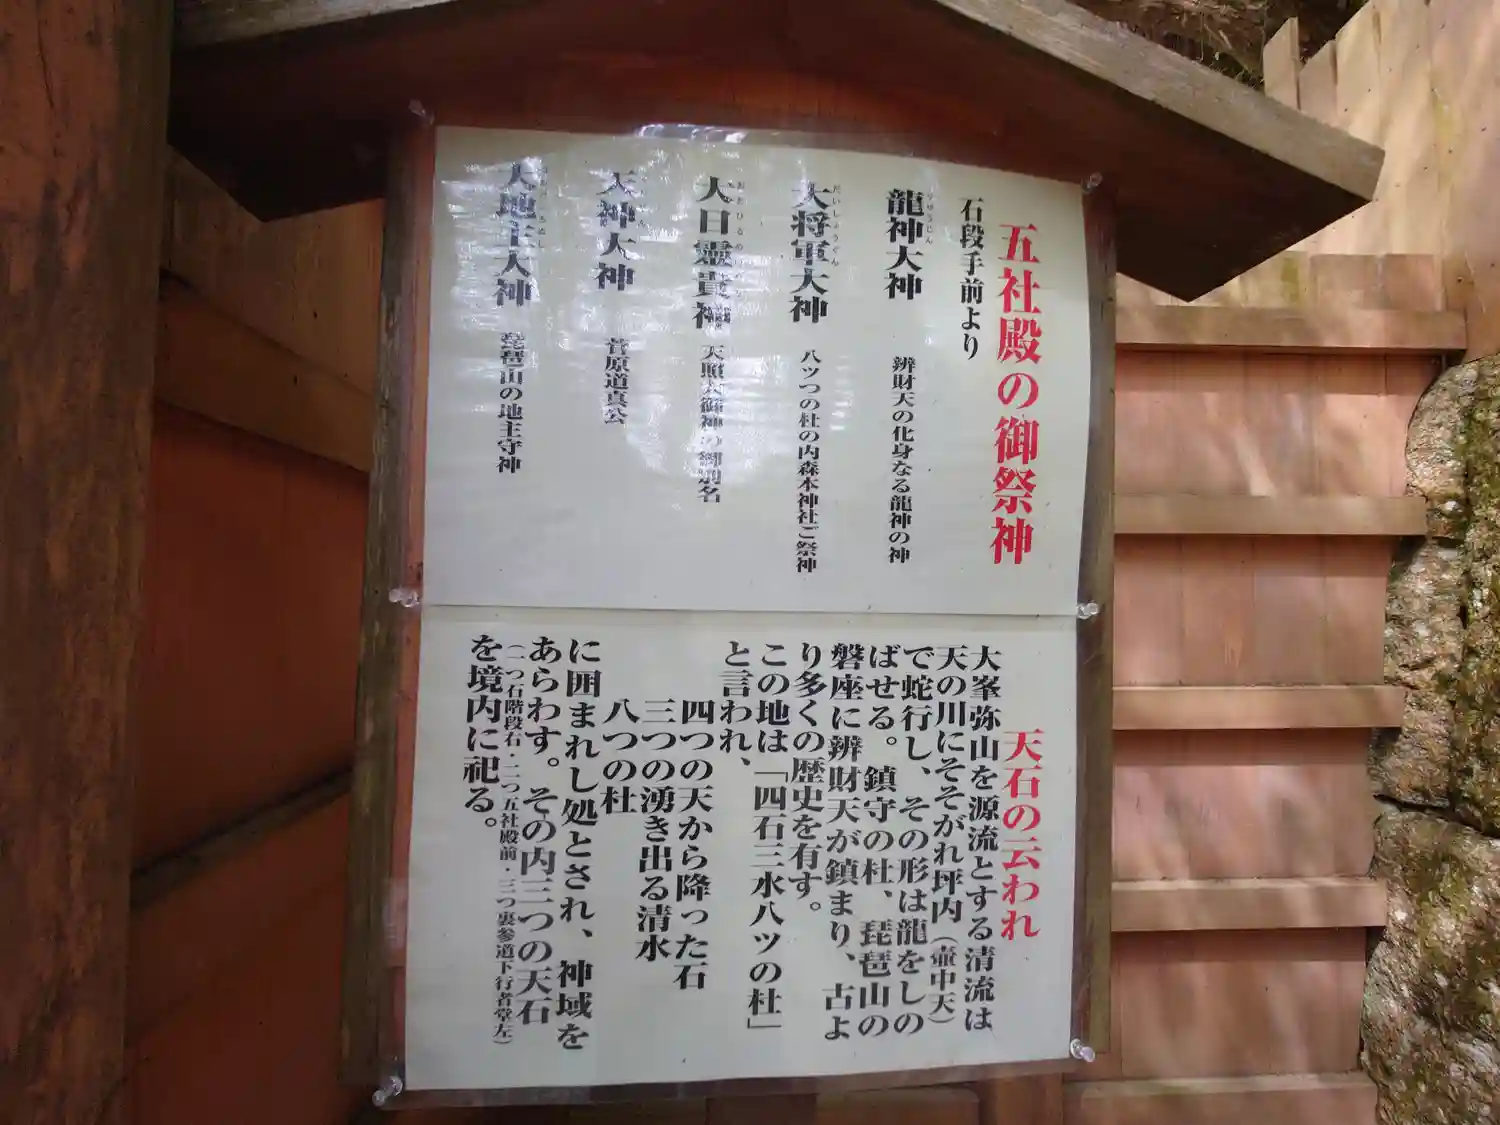 五社殿の御祭神
石段手前より
龍神大神 辨財天の化身なる龍神の神
大将軍大神 八ツつの杜の内森本神社ご祭神
だいしょうぐん
大日靈貴神 天照大御神の御別名
天神大神 菅原道真公
大地主大神 琵琶山の地主守神
天石の云われ
大峯弥山を源流とする清流は
天の川にそそがれ坪内（壷中天）
で蛇行し、その形は龍をしの
ばせる。鎮守の杜、琵琶山の
磐座に辨財天が鎮まり、古よ
り多くの歴史を有す。
この地は「四石三水八ツの杜」
と言われ、
四つの天から降った石
三つの湧き出る清水
八つの杜
に囲まれし処とされ、神域を
あらわす。その内三つの天石
（一つ石階段右・二つ五社殿前・三つ裏参道下行者堂左）
を境内に祀る。